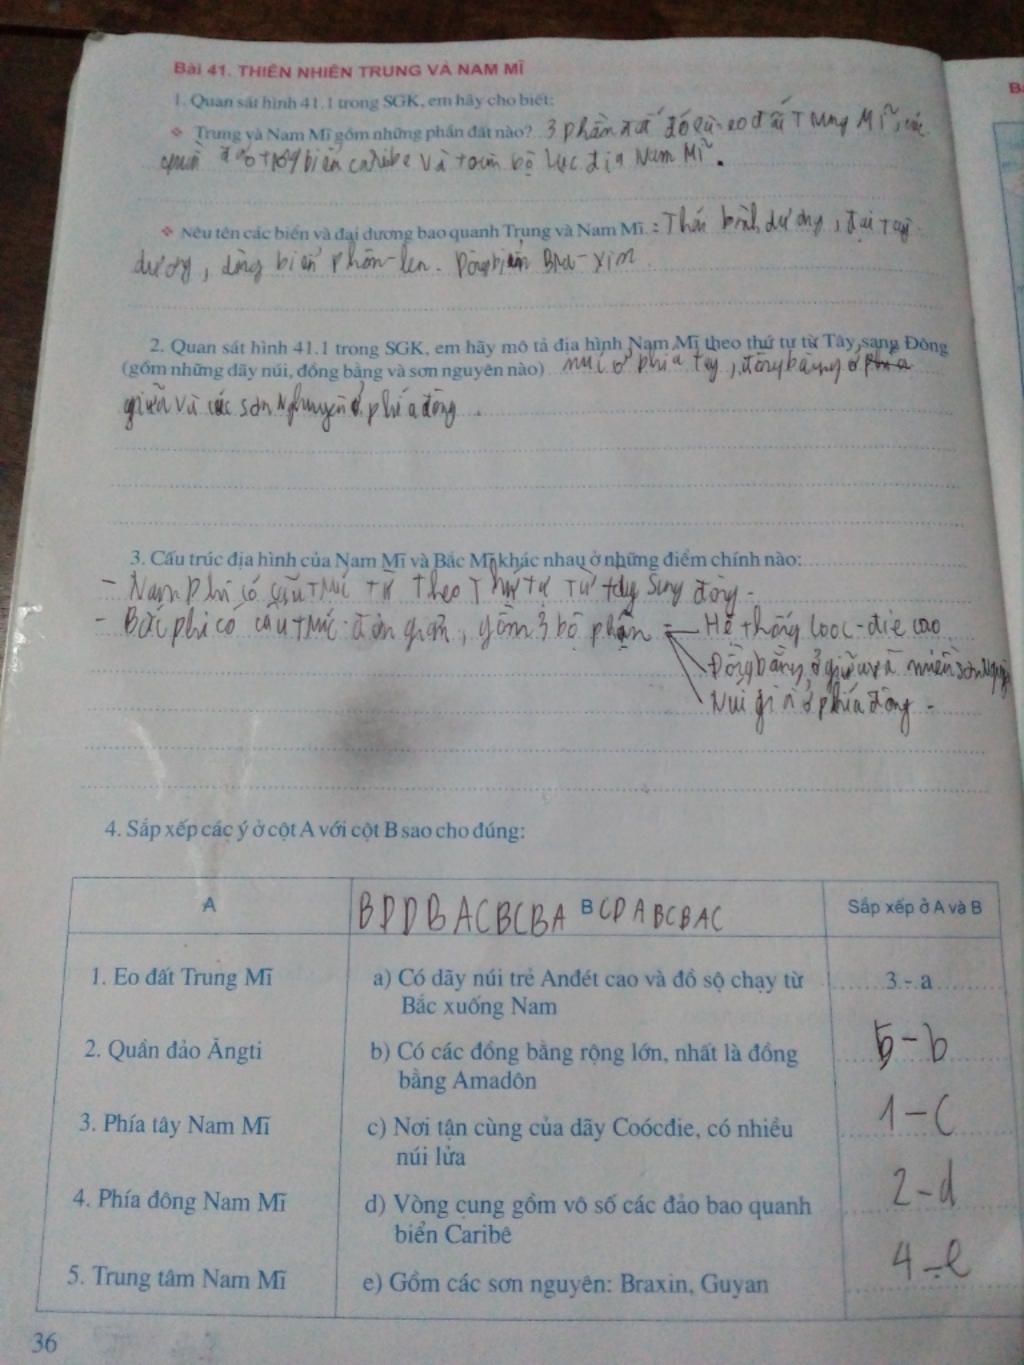 Bài 41. THIÊN NHIÊN TRUNG VÀ NAM MĨ
1. Quan sát hình 41.1 trong SGK, em hãy cho biết:
❖ Trung và Nam Mĩ gồm những phần đất nào? 3 phần đất đó là eo đất Trung Mĩ, các
quần đảo trong biển caribe và toàn bộ lục địa Nam Mĩ.
❖ Nêu tên các biển và đại dương bao quanh Trung và Nam Mĩ. : Thái bình dương, đại tây
dương, dòng biển phôn-len. Dòng biển Bra-xin
2. Quan sát hình 41.1 trong SGK, em hãy mô tả địa hình Nam Mĩ theo thứ tự từ Tây sang Đông
(gồm những dãy núi, đồng bằng và sơn nguyên nào) núi ở phía tây, đồng bằng ở phía
giữa và các sơn nghuyên ở phía đông.
3. Cấu trúc địa hình của Nam Mĩ và Bắc Mĩ khác nhau ở những điểm chính nào:
- Nam phi có cấu trúc từ theo thứ tự từ tây sang đông.
- Bắc phi có cấu trúc đơn giản, gồm 3 bộ phận Hệ thống cooc-đie cao
Đồng bằng ở giữa và miền sơn
Núi già ở phía đông.
4. Sắp xếp các ý ở cột A với cột B sao cho đúng:
A BDDBACBCBA B CDABCBAC Sắp xếp ở A và B
1. Eo đất Trung Mĩ a) Có dãy núi trẻ Anđét cao và đồ sộ chạy từ 3 - a
Bắc xuống Nam
2. Quần đảo Ăngti b) Có các đồng bằng rộng lớn, nhất là đồng 5 - b
bằng Amadôn
3. Phía tây Nam Mĩ c) Nơi tận cùng của dãy Coócđie, có nhiều 1 - c
núi lửa
4. Phía đông Nam Mĩ d) Vòng cung gồm vô số các đảo bao quanh 2 - d
biển Caribê
5. Trung tâm Nam Mĩ e) Gồm các sơn nguyên: Braxin, Guyan 4 - e
36